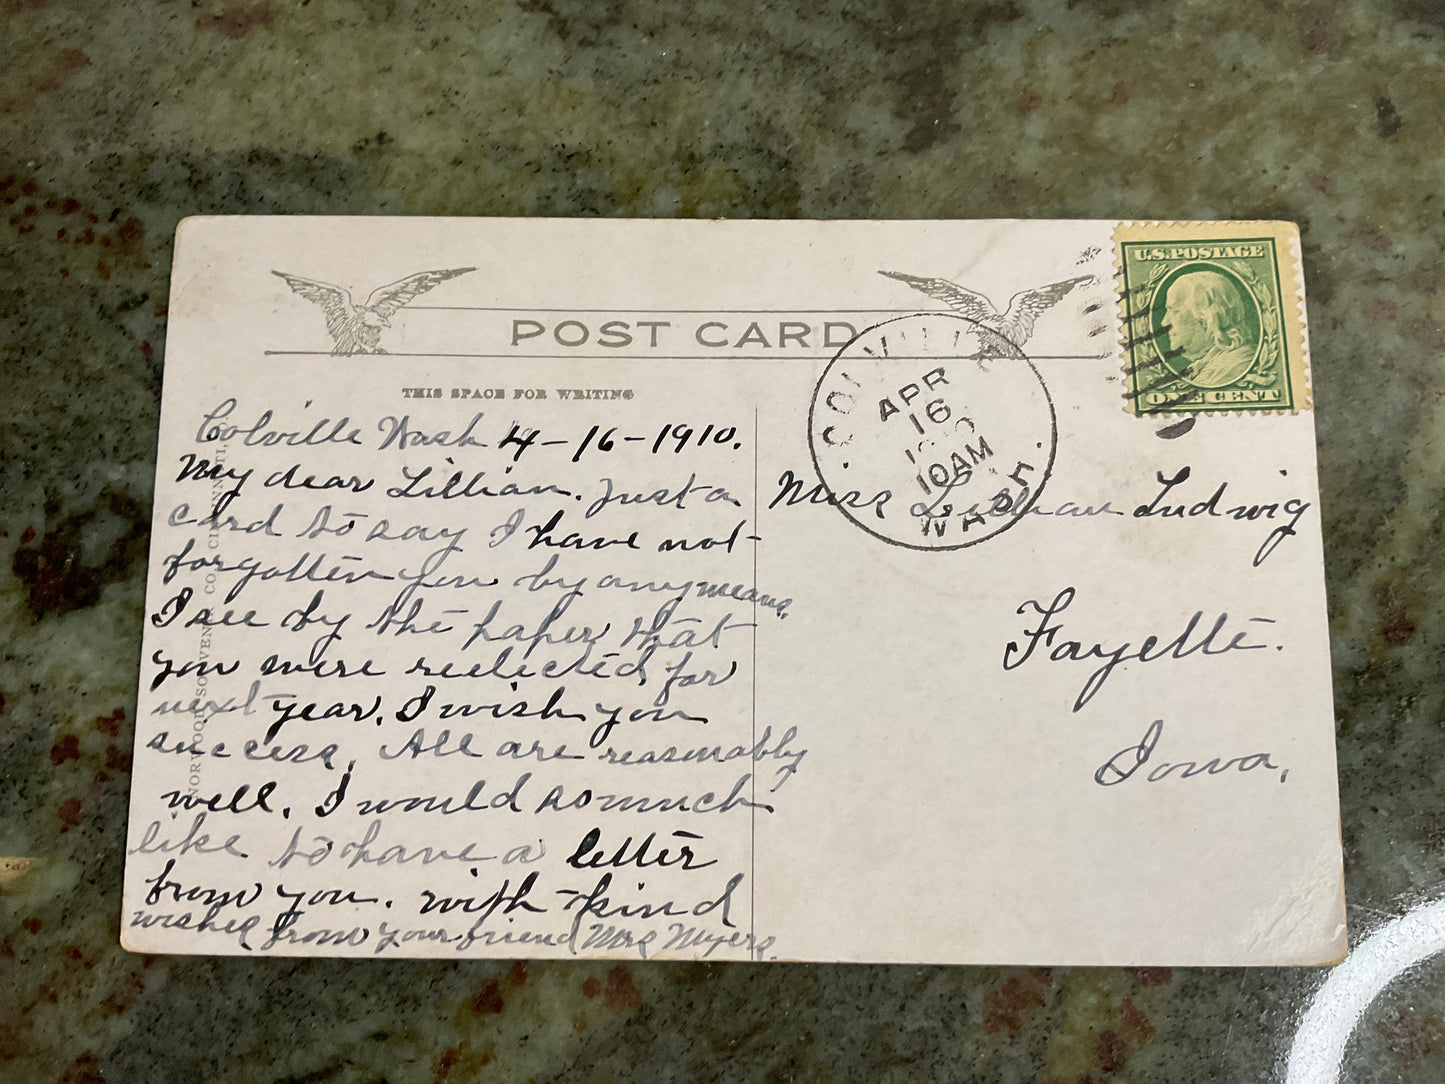 POST CARD
THIS SPACE FOR WRITING
Colville Wash 4-16-1910.
My dear Lillian. Just a
card to say I have not
forgotten you by any means.
I see by the paper that
you were reelected for
next year. I wish you
success. All are reasonably
well. I would so much
like to have a letter
from you. with kind
wishes from your friend Mrs Myers.
NORWOOD SOUVENIR CO. CINCINNATI.
U.S. POSTAGE
ONE CENT
COLVILLE
APR
16
10AM
WASH.
Miss Lillian Ludwig
Fayette.
Iowa,